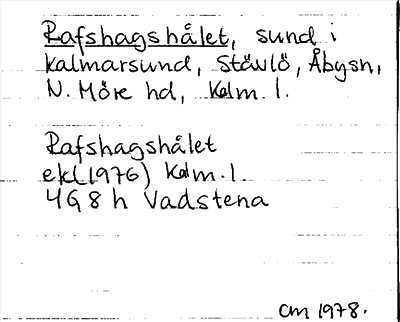 Rafshagshålet, sund i
Kalmarsund, Stävlö, Åbysn,
N. Möre hd, Kalm. l.
Rafshagshålet
ekl(1976) Kalm. l.
4G 8h Vadstena
CM 1978.